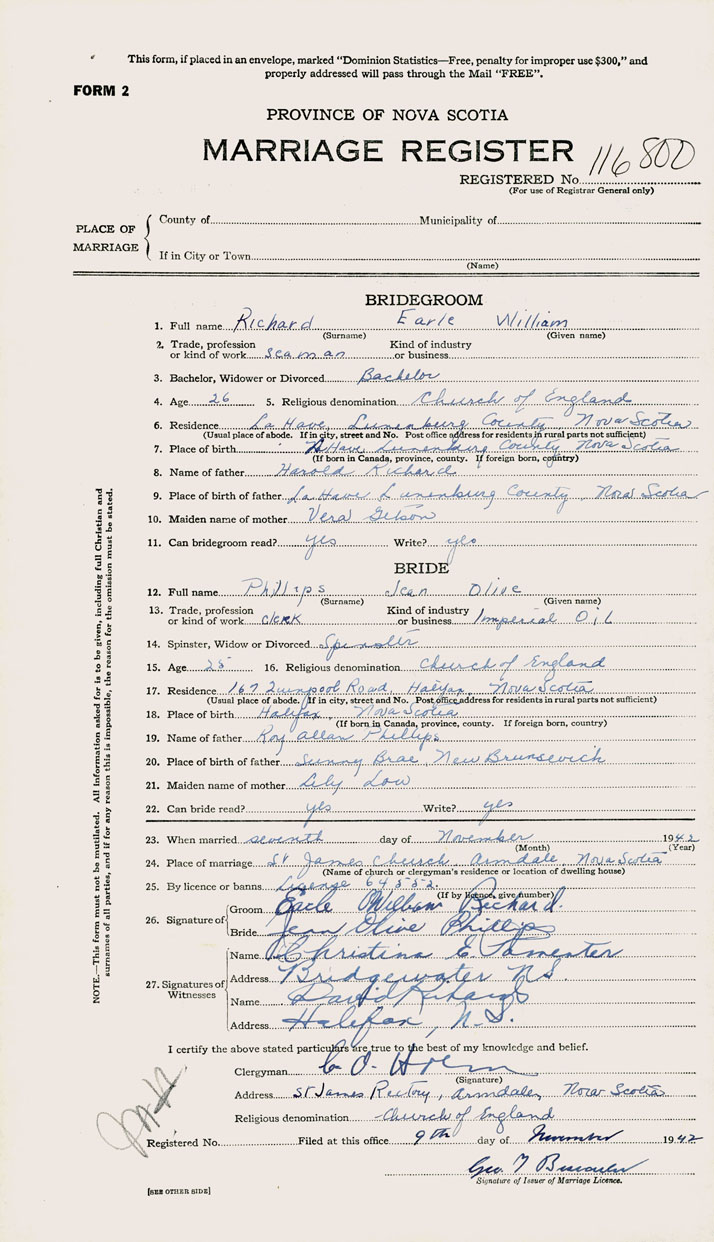 This form, if placed in an envelope, marked "Dominion Statistics—Free, penalty for improper use $300," and
properly addressed will pass through the Mail "FREE".
FORM 2
PROVINCE OF NOVA SCOTIA
MARRIAGE REGISTER
116 800
REGISTERED No.
(For use of Registrar General only)
PLACE OF MARRIAGE
County of Municipality of
If in City or Town
(Name)
BRIDEGROOM
1. Full name Richard Earle William
(Surname) (Given name)
2. Trade, profession or kind of work seaman Kind of industry or business
3. Bachelor, Widower or Divorced Bachelor
4. Age 26 5. Religious denomination Church of England
6. Residence La Have, Lunenburg County, Nova Scotia
(Usual place of abode. If in city, street and No. Post office address for residents in rural parts not sufficient)
7. Place of birth Have, Lunenburg County Nova Scotia
(If born in Canada, province, county. If foreign born, country)
8. Name of father Harold Richard
9. Place of birth of father La Have Lunenburg County, Nova Scotia
10. Maiden name of mother Vera Getson
11. Can bridegroom read? yes Write? yes
BRIDE
12. Full name Phillips Jean Olive
(Surname) (Given name)
13. Trade, profession or kind of work clerk Kind of industry or business Imperial Oil
14. Spinster, Widow or Divorced Spinster
15. Age 25 16. Religious denomination Church of England
17. Residence 167 Quinpool Road, Halifax, Nova Scotia
(Usual place of abode. If in city, street and No. Post office address for residents in rural parts not sufficient)
18. Place of birth Halifax, Nova Scotia
(If born in Canada, province, county. If foreign born, country)
19. Name of father Roy Allan Phillips
20. Place of birth of father Sunny Brae, New Brunswick
21. Maiden name of mother Lily Low
22. Can bride read? yes Write? yes
23. When married seventh day of November 1942
(Month) (Year)
24. Place of marriage St James Church, Armdale, Nova Scotia
(Name of church or clergyman's residence or location of dwelling house)
25. By licence or banns License 64552
(If by licence, give number)
26. Signature of
Groom Earle William Richard.
Bride Jean Olive Phillips
27. Signatures of Witnesses
Name Christina E.
Address Bridgewater NS
Name David
Address Halifax, N.S.
I certify the above stated particulars are true to the best of my knowledge and belief.
Clergyman
(Signature)
Address St James Rectory, Armdale, Nova Scotia
Religious denomination Church of England
Registered No. Filed at this office 9th day of November 1942
Geo.
Signature of Issuer of Marriage Licence.
[SEE OTHER SIDE]
NOTE.—This form must not be mutilated. All information asked for is to be given, including full Christian and
surnames of all parties, and if for any reason this is impossible, the reason for the omission must be stated.